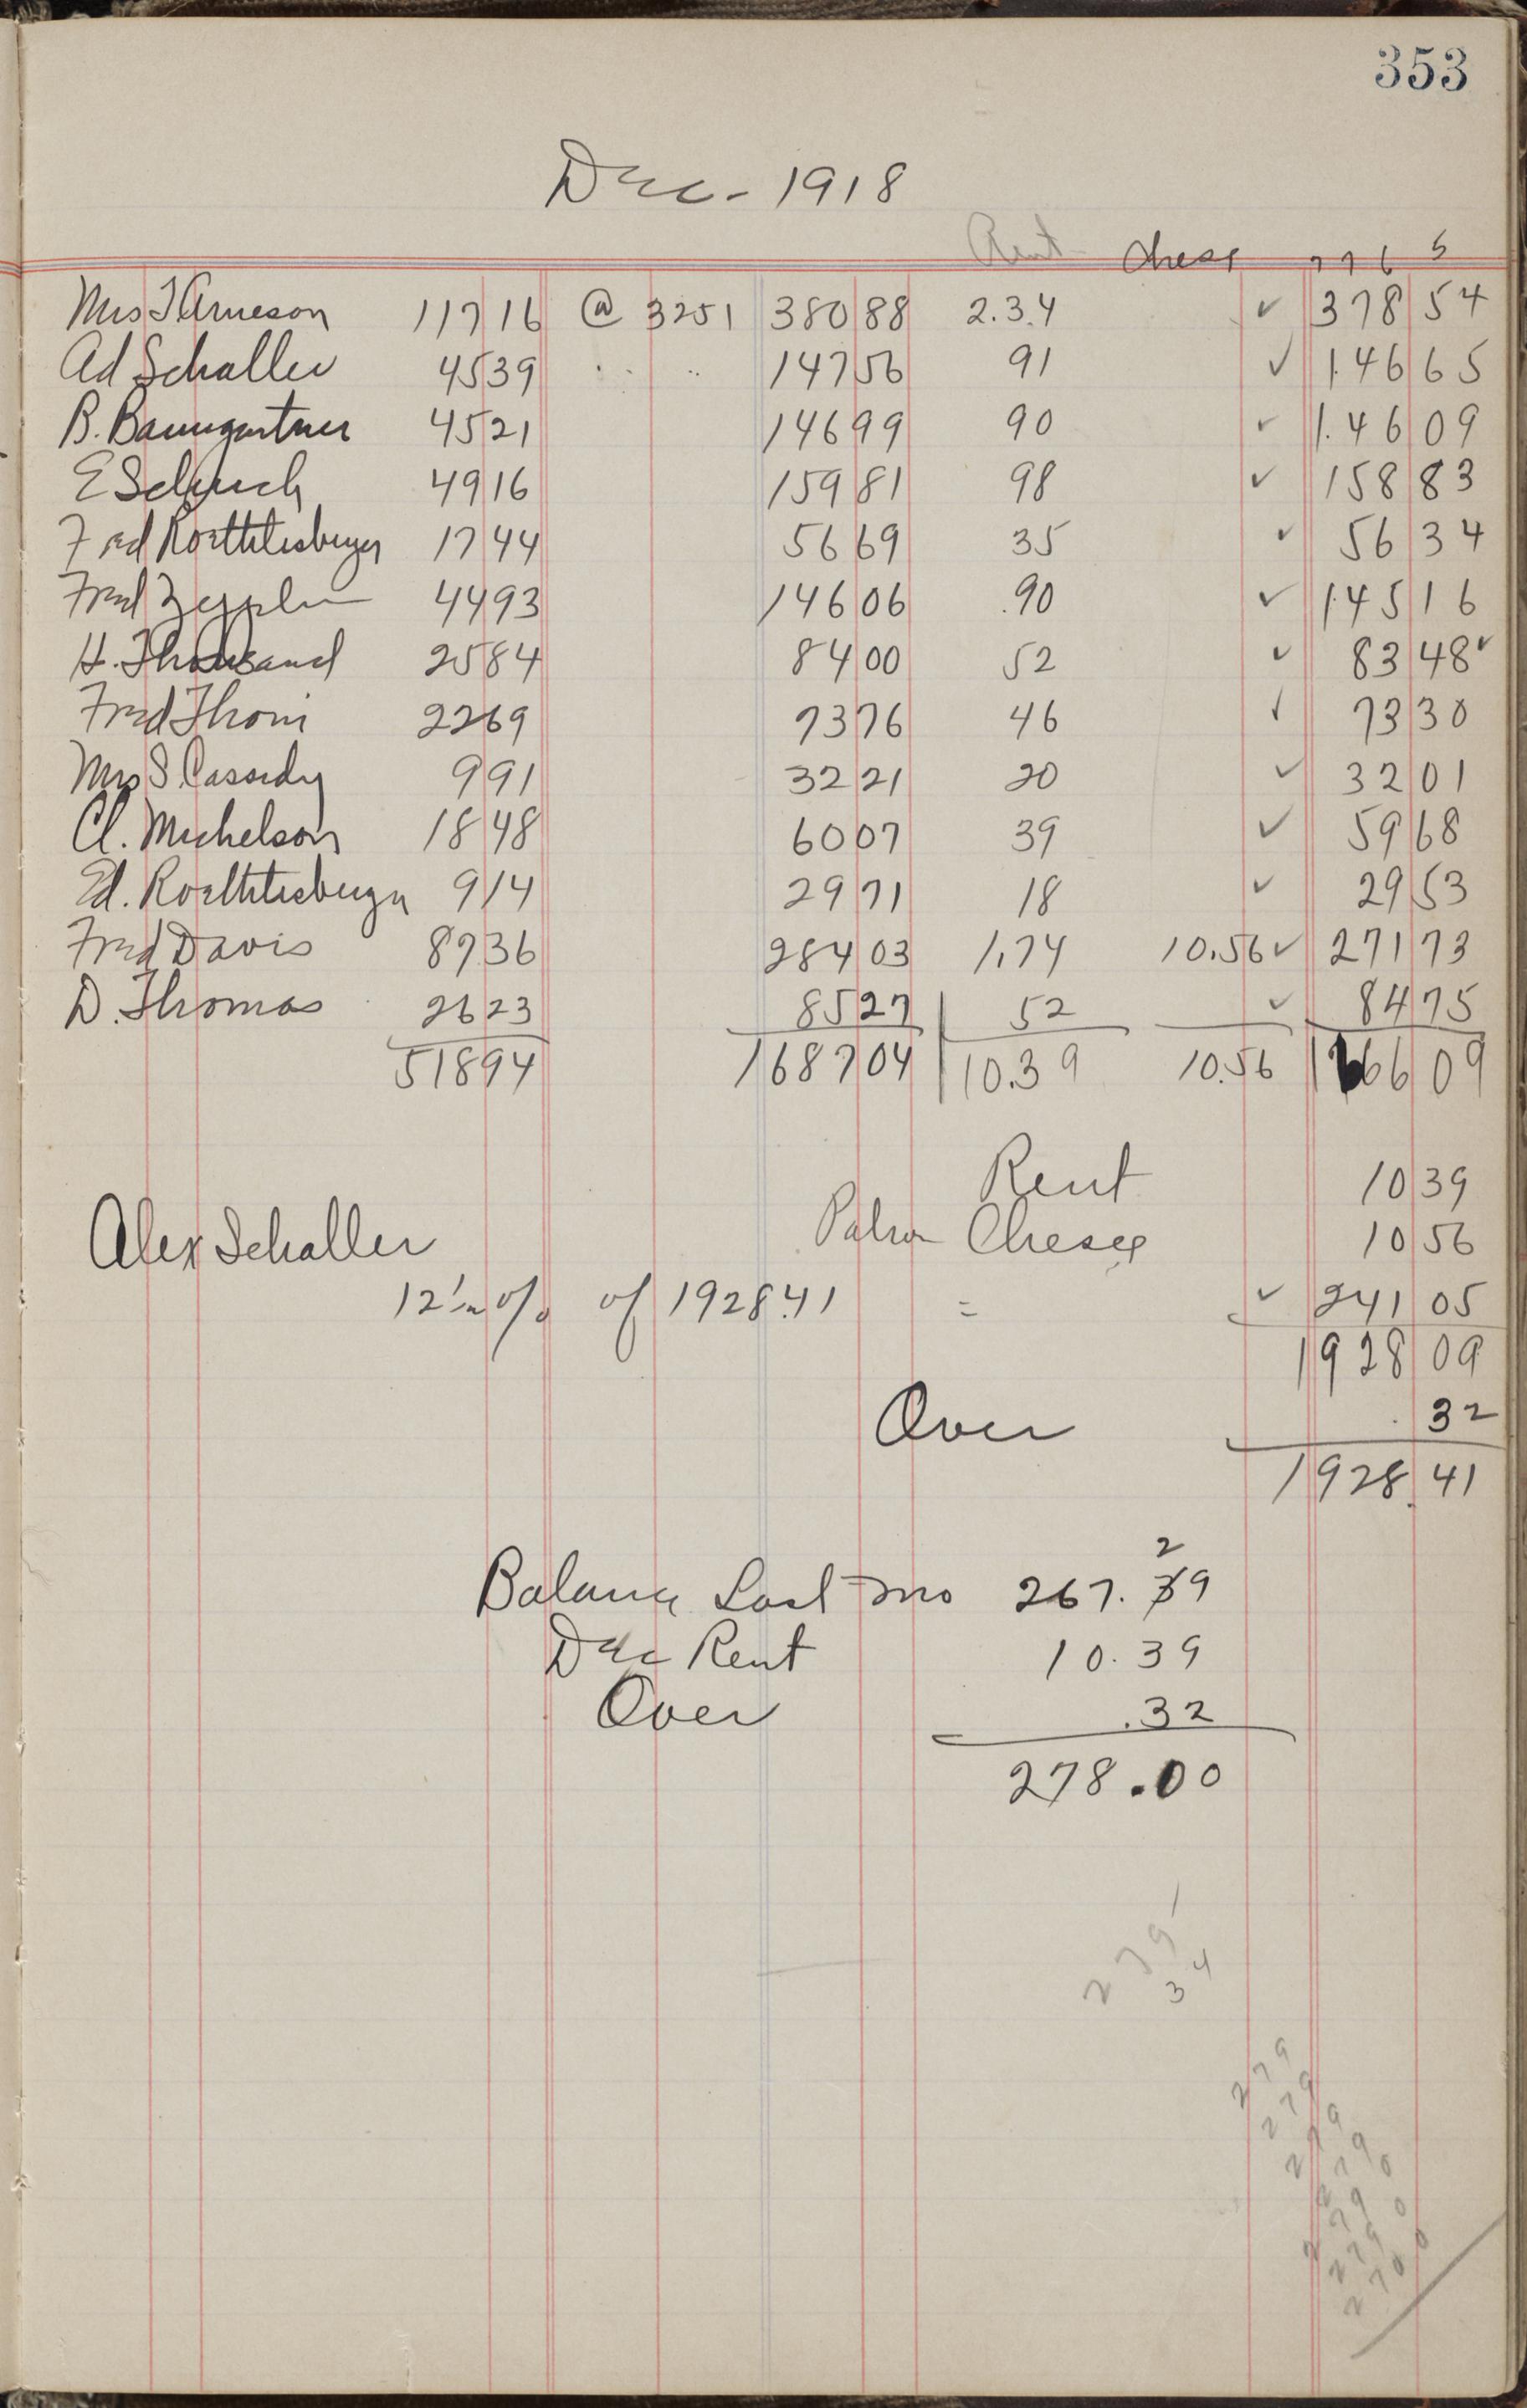 353
Dec - 1918
Rent Chese 7 7 6 5
Mrs J Arneson 11716 @ 3251 380 88 2.34 ✓ 378 54
Ad Schaller 4539 .. .. 147 56 91 ✓ 146 65
B. Baumgartner 4521 146 99 90 ✓ 146 09
E Schurch 4916 159 81 98 ✓ 158 83
Fred Roethlisberger 1744 56 69 35 ✓ 56 34
Fred 4493 146 06 .90 ✓ 145 16
H. Thousand 2584 84 00 52 ✓ 83 48 ✓
Fred Thoni 2269 73 76 46 ✓ 73 30
Mrs S Cassidy 991 32 21 20 ✓ 32 01
Cl. Michelson 1848 60 07 39 ✓ 59 68
Ed. Roethlisberger 914 29 71 18 ✓ 29 53
Fred Davis 8736 284 03 1.74 10.56 ✓ 271 73
D. Thomas 2623 85 27 52 ✓ 84 75
51894 1687 04 10.39 10.56 1666 09
Rent 10 39
Patron Chese 10 56
Alex Schaller
12 1/2 % of 1928.41 = ✓ 241 05
1928 09
Over .32
1928.41
2
Balance Last mo 267.39
Dec Rent 10.39
Over .32
278.00
279
34
279
279
279
279 0
279 0
279 0
270